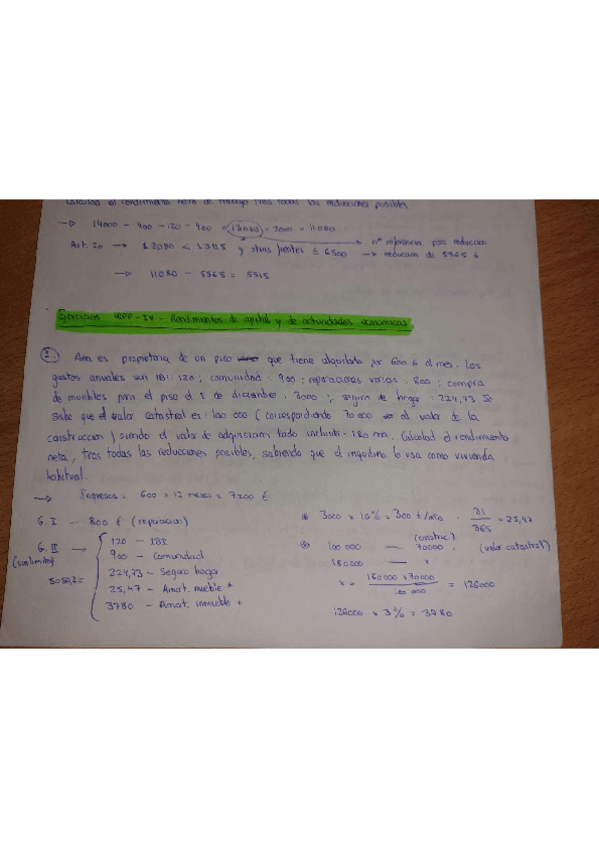 Calculad el rendimiento neto de trabajo tras todas las reducciones posibles
→ 14000 - 400 - 120 - 400 = 13080 - 2000 = 11080
Art. 20 → 13080 < 13115 y otras fuentes ≤ 6500 → reducción de 5565 €
nº ingresos para reducción
→ 11080 - 5565 = 5515
Ejercicios IRPF-IV - Rendimientos de capital y de actividades económicas
1. Ana es propietaria de un piso que tiene alquilado por 600 € al mes. Los
gastos anuales son IBI: 120; comunidad: 900; reparaciones varias: 800; compra
de muebles para el piso el 1 de diciembre: 3000; seguro de hogar: 224,73. Se
sabe que el valor catastral es: 100 000 (correspondiendo 70 000 al valor de la
construccion) siendo el valor de adquisicion todo incluido: 180 000. Calculad el rendimiento
neto, tras todas las reducciones posibles, sabiendo que el inquilino lo usa como vivienda
habitual.
→ Ingresos = 600 x 12 meses = 7200 €
G. I - 800 € (reparacion)
G. II → 120 - IBI
(sin limites) 900 - Comunidad
5050,2 = 224,73 - Seguro hogar
25,47 - Amort. mueble *
3780 - Amort. inmueble *
3000 x 10% = 300 €/año · 31/365 = 25,47
100 000 — 70000 (construc.) (valor catastral)
180000 — x
x = 180000 x 70000 / 100 000 = 126000
126000 x 3% = 3780